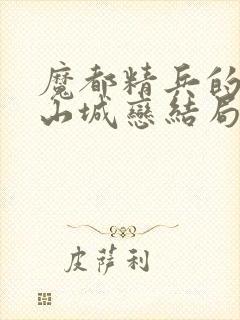 魔都精兵的
山城戀結局
皮薩利